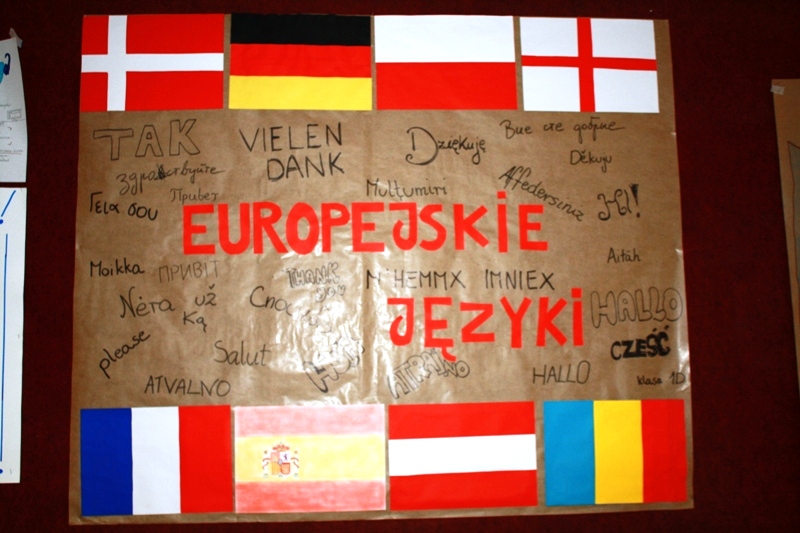 TAK
VIELEN
DANK
Dziękuję
Вие сте добрие
Děkuju
здравствуйте
Привет
Mulţumiri
Affedersiniz
Hi!
Γεια σου
EUROPEJSKIE
Moikka
ПРИВІТ
THANK
YOU
M'HEMMX IMNIEX
Aitäh
Nėra už
Ką
JĘZYKI
HALLO
please
Salut
CZEŚĆ
ATVALNO
HALLO
klasa 1D